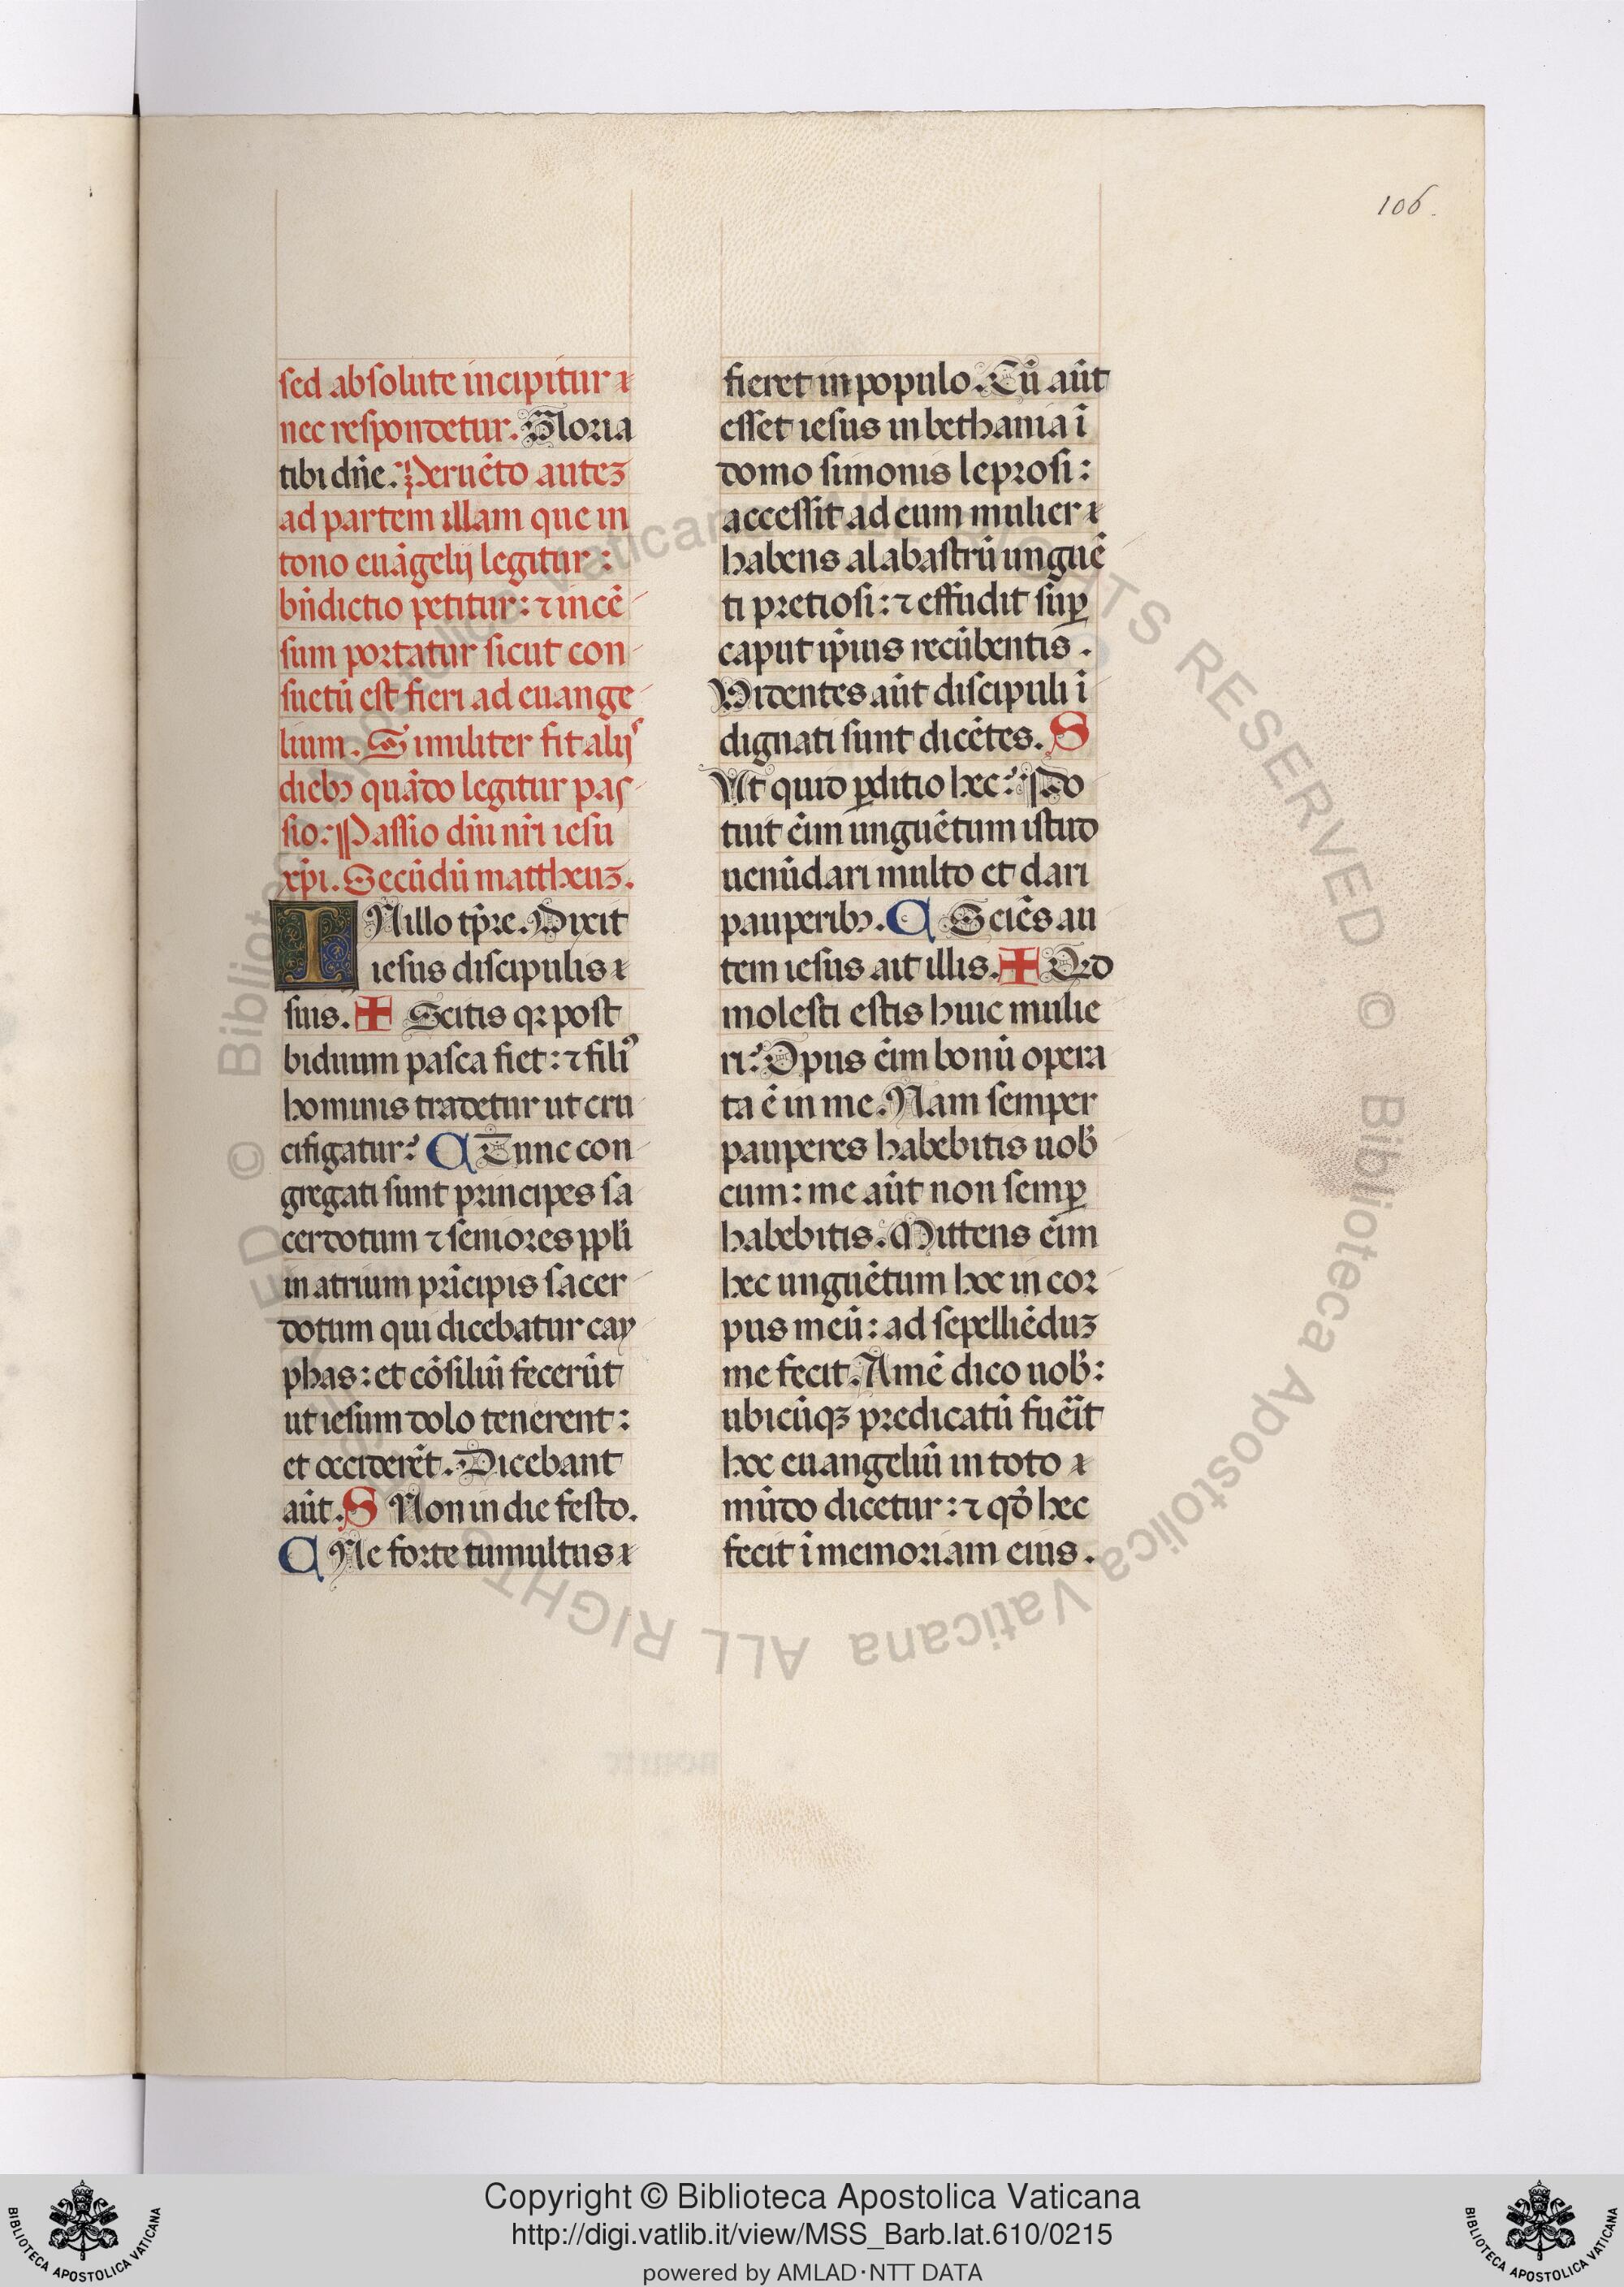 106.
sed absolute incipitur
nec respondetur. Gloria
tibi dn̄e. Peruēto autez
ad partem illam que in
tono euāgelij legitur:
bn̄dictio petitur: ⁊ incē
sum portatur sicut con
suetū est fieri ad euange
lium. Similiter fit alijˢ
diebꝫ quādo legitur pas
sio: Passio dn̄i nr̄i iesu
xp̄i. Secūdū mattheuz.
IN illo tp̄re. Dixit
iesus discipulis
suis. ✠ Scitis qꝛ post
biduum pasca fiet: ⁊ fili⁹
hominis tradetur ut cru
cifigatur? C Tunc con
gregati sunt principes sa
cerdotum ⁊ seniores ppl̄i
in atrium prīcipis sacer
dotum qui dicebatur cay
phas: et cōsiliū fecerūt
ut iesum dolo tenerent:
et occiderēt. Dicebant
aūt. S Non in die festo.
C Ne forte tumultus
fieret in populo. Cū aūt
esset iesus in bethania ī
domo simonis leprosi:
accessit ad eum mulier
habens alabastrū unguē
ti pretiosi: ⁊ effudit suꝑ
caput ip̄ius recūbentis.
Videntes aūt discipuli ī
dignati sunt dicētes. S
Ut quid ꝑditio hec? Po
tuit eīm unguētum istud
uenūdari multo et dari
pauperibꝫ. C Sciēs au
tem iesus ait illis. ✠ Qꝛd
molesti estis huic mulie
ri? Opus eīm bonū opera
ta ē in me. Nam semper
pauperes habebitis uob̄
cum: me aūt non semꝑ
habebitis. Mittens eīm
hec unguētum hoc in cor
pus meū: ad sepelliēduz
me fecit. Amē dico uob̄:
ubicūqꝫ predicatū fuēit
hoc euangeliū in toto
mūdo dicetur: ⁊ qō hec
fecit ī memoriam eius.
© Biblioteca Apostolica Vaticana ALL RIGHTS RESERVED © Biblioteca Apostolica Vaticana ALL RIGHTS RESERVED
Copyright © Biblioteca Apostolica Vaticana
http://digi.vatlib.it/view/MSS_Barb.lat.610/0215
powered by AMLAD·NTT DATA
BIBLIOTECA APOSTOLICA VATICANA
BIBLIOTECA APOSTOLICA VATICANA